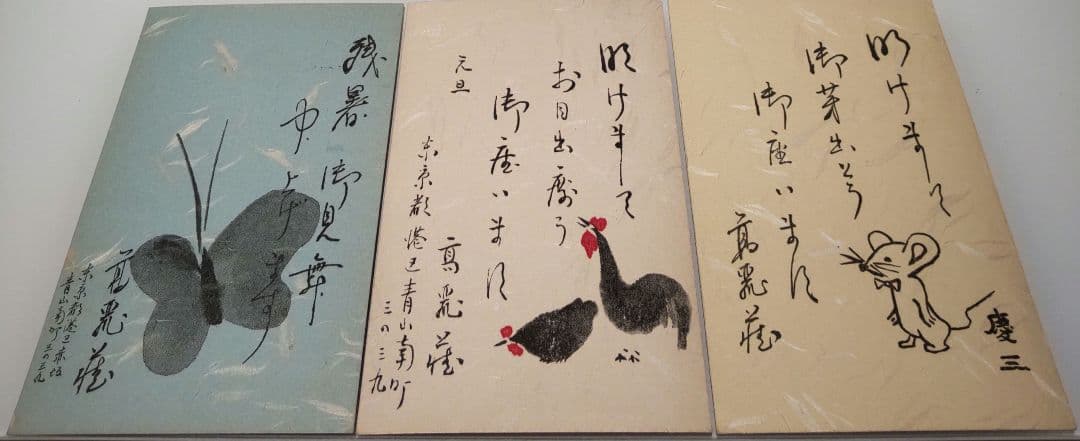 残暑御見舞
申上げます
高麗蔵
東京都港区赤坂
青山南町三の三九
明けまして
お目出度う
御座います
元旦
高麗蔵
東京都港区青山南町
三の三九
明けまして
御芽出とう
御座います
高麗蔵
慶三